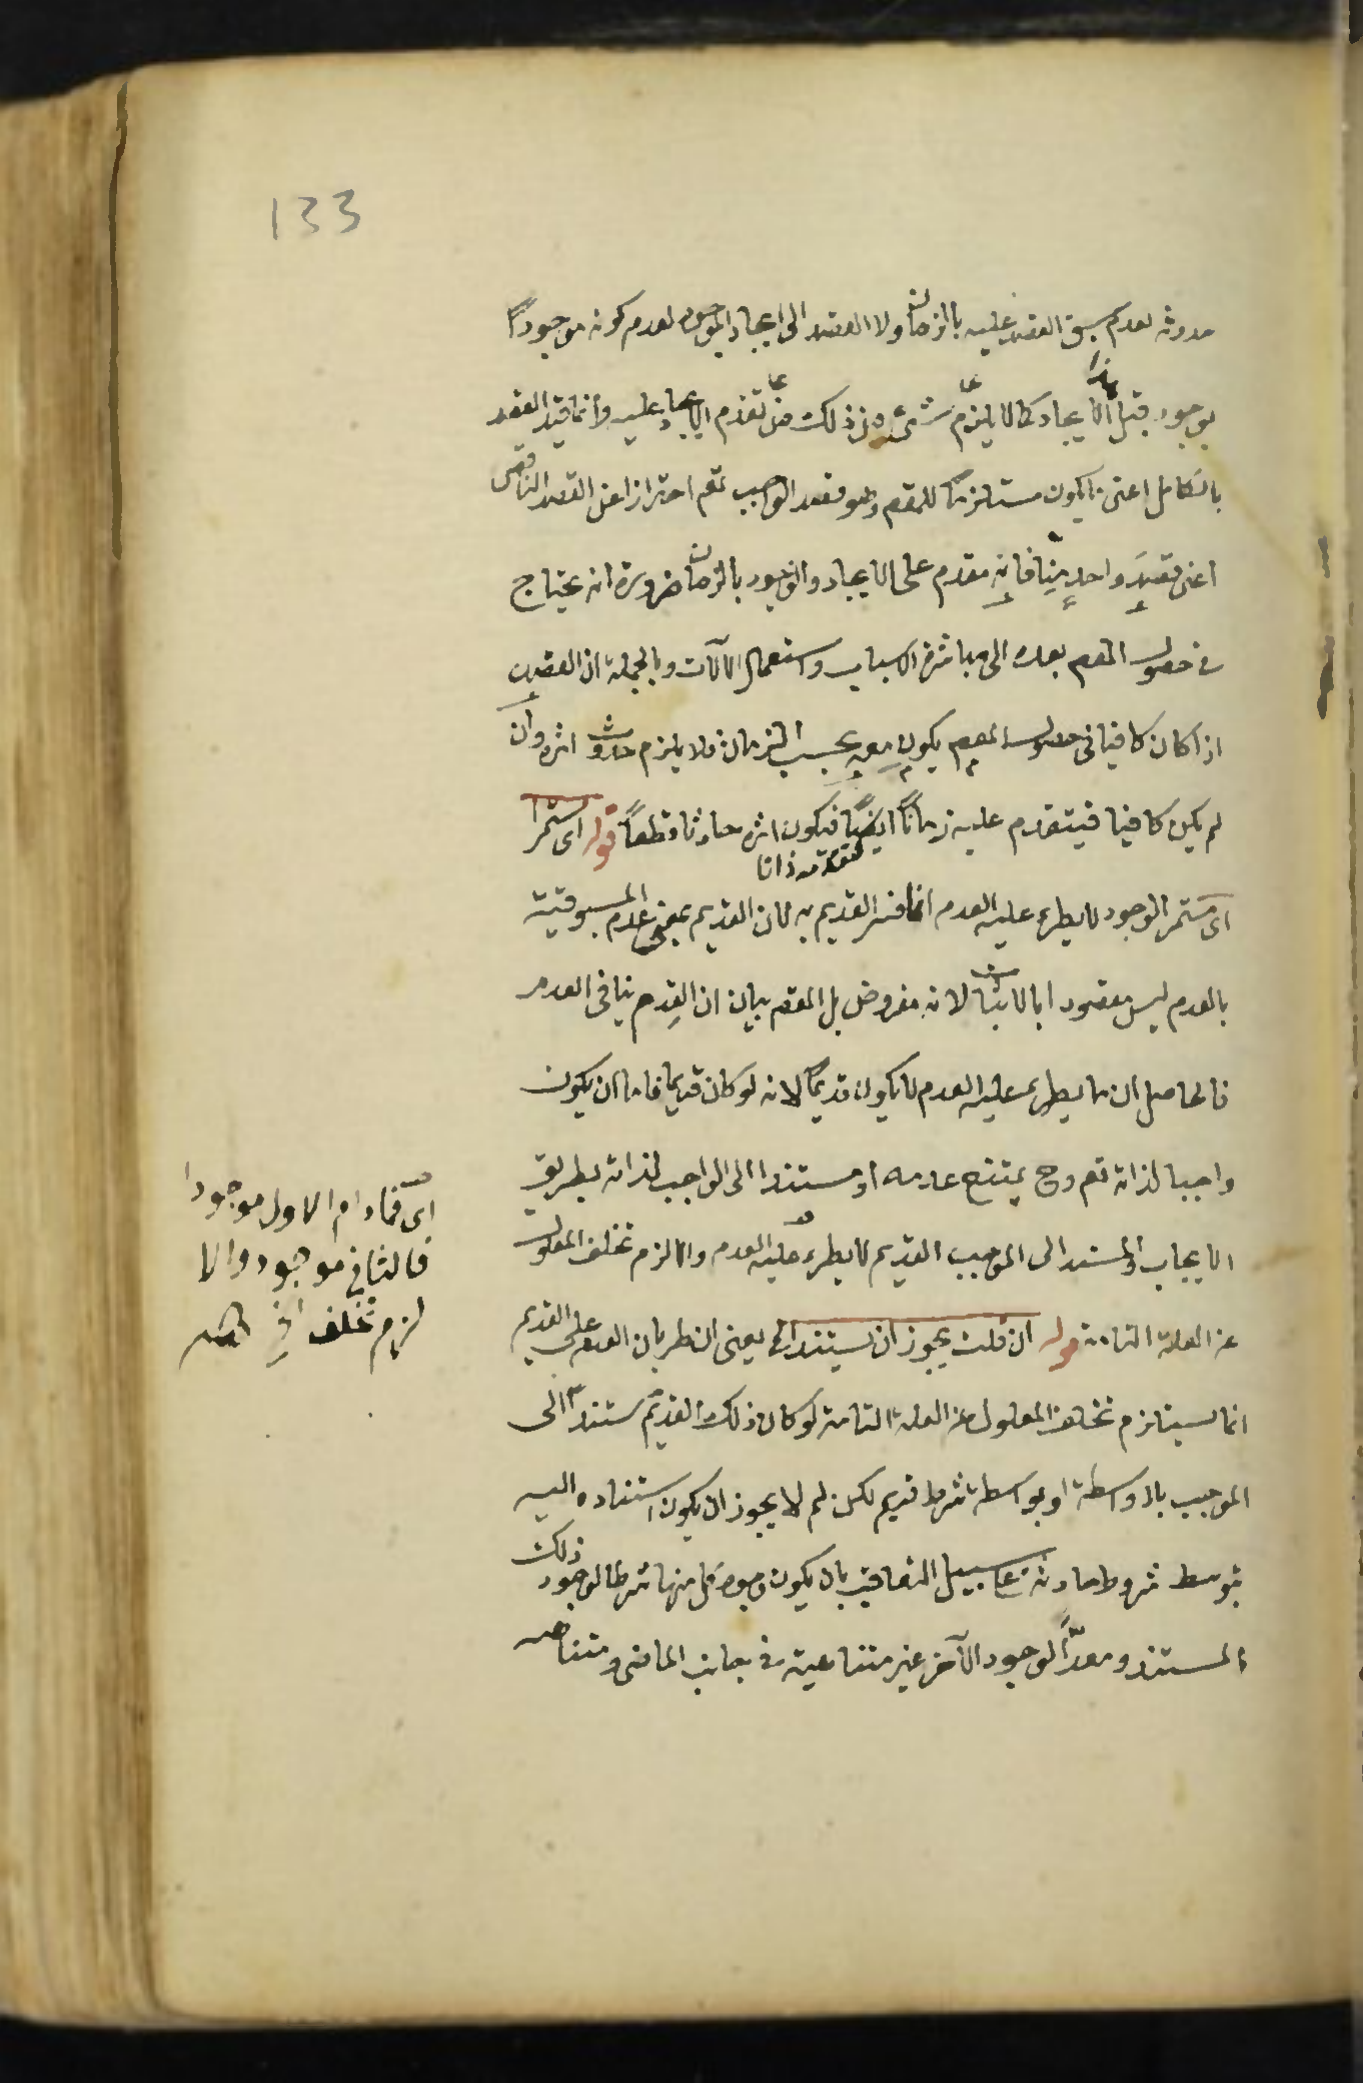 133
حدوثه لعدم سبق القصد عليه بالزمان ولا القصد الى ايجاد الموجود لعدم كونه موجوداً
بوجود قبل هذا الايجاد كما لا يلزم شئ من ذلك من تقدم الايجاد عليه وانما قيد القصد
بالكامل اعنى ما يكون مستلزماً للمقص وهو قصد الواجب تعم احترازا عن القصد الناقص
اعنى قصدَ واحدٍ مِنا فانه مقدم على الايجاد والوجود بالزمان ضرورة انه يحتاج
فى حصول المقص بعده الى مباشرة الاسباب واستعمال الآلات وبالجملة ان القصد
اذا كان كافيا فى حصول المقص يكون معه بحسب الزمان فلا يلزم حدوث اثره وان
لم يكن كافيا فيتقدم عليه زماناً ايضاً فيكون اثره حادثا قطعاً قوله اى مستمرا
كتقدمه ذاتا
اى مستمر الوجود لا يطرء عليه العدم انما فسر القديم به لان القديم بمعنى عدم المسبوقية
بالعدم ليس مقصودا بالاثبات لانه مفروض بل المقص بيان ان القِدم ينافى العدم
فالحاصل ان ما يطرء عليه العدم لا يكون قديماً لانه لو كان قديما فاما ان يكون
واجبا لذاته تعم وح يمتنع عدمه او مستندا الى الواجب لذاته بطريق
الايجاب والمستند الى الموجب القديم لا يطرء عليه العدم والا لزم تخلف المعلول
عن العلة التامة قوله ان قلت يجوز ان يستند الخ يعنى ان طريان العدم على القديم
انما يستلزم تخلف المعلول عن العلة التامة لو كان ذلك القديم مستندا الى
الموجب بلا واسطة او بواسطة شرط قديم لكن لم لا يجوز ان يكون استناده اليه
بتوسط شروط حادثة على سبيل التعاقب بان يكون وجود كل منها شرطا لوجود ذلك
المستند ومعدّاً لوجود الآخر غير متناهية فى جانب الماضى ومتناهية
اى فمادام الاول موجودا
فالثانى موجود والا
لزم تخلف الخ